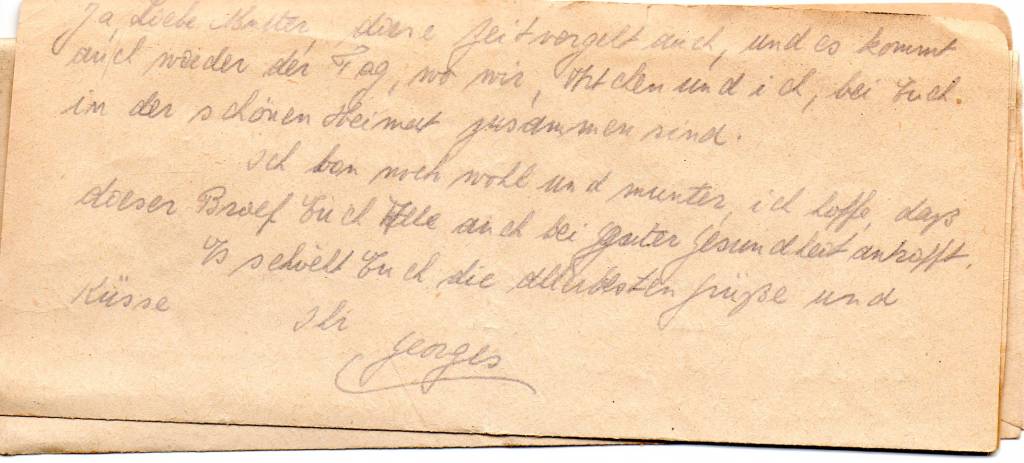 Ja, Liebe Mutter, diese Zeit vergeht auch, und es kommt
auch wieder der Tag, wo wir, und ich, bei Euch
in der schönen Heimat zusammen sind.
Ich bin noch wohl und munter, ich hoffe, daß
dieser Brief Euch Alle auch bei guter Gesundheit antrifft.
Es schickt Euch die allerbesten Grüße und
Küsse Ihr
Georges